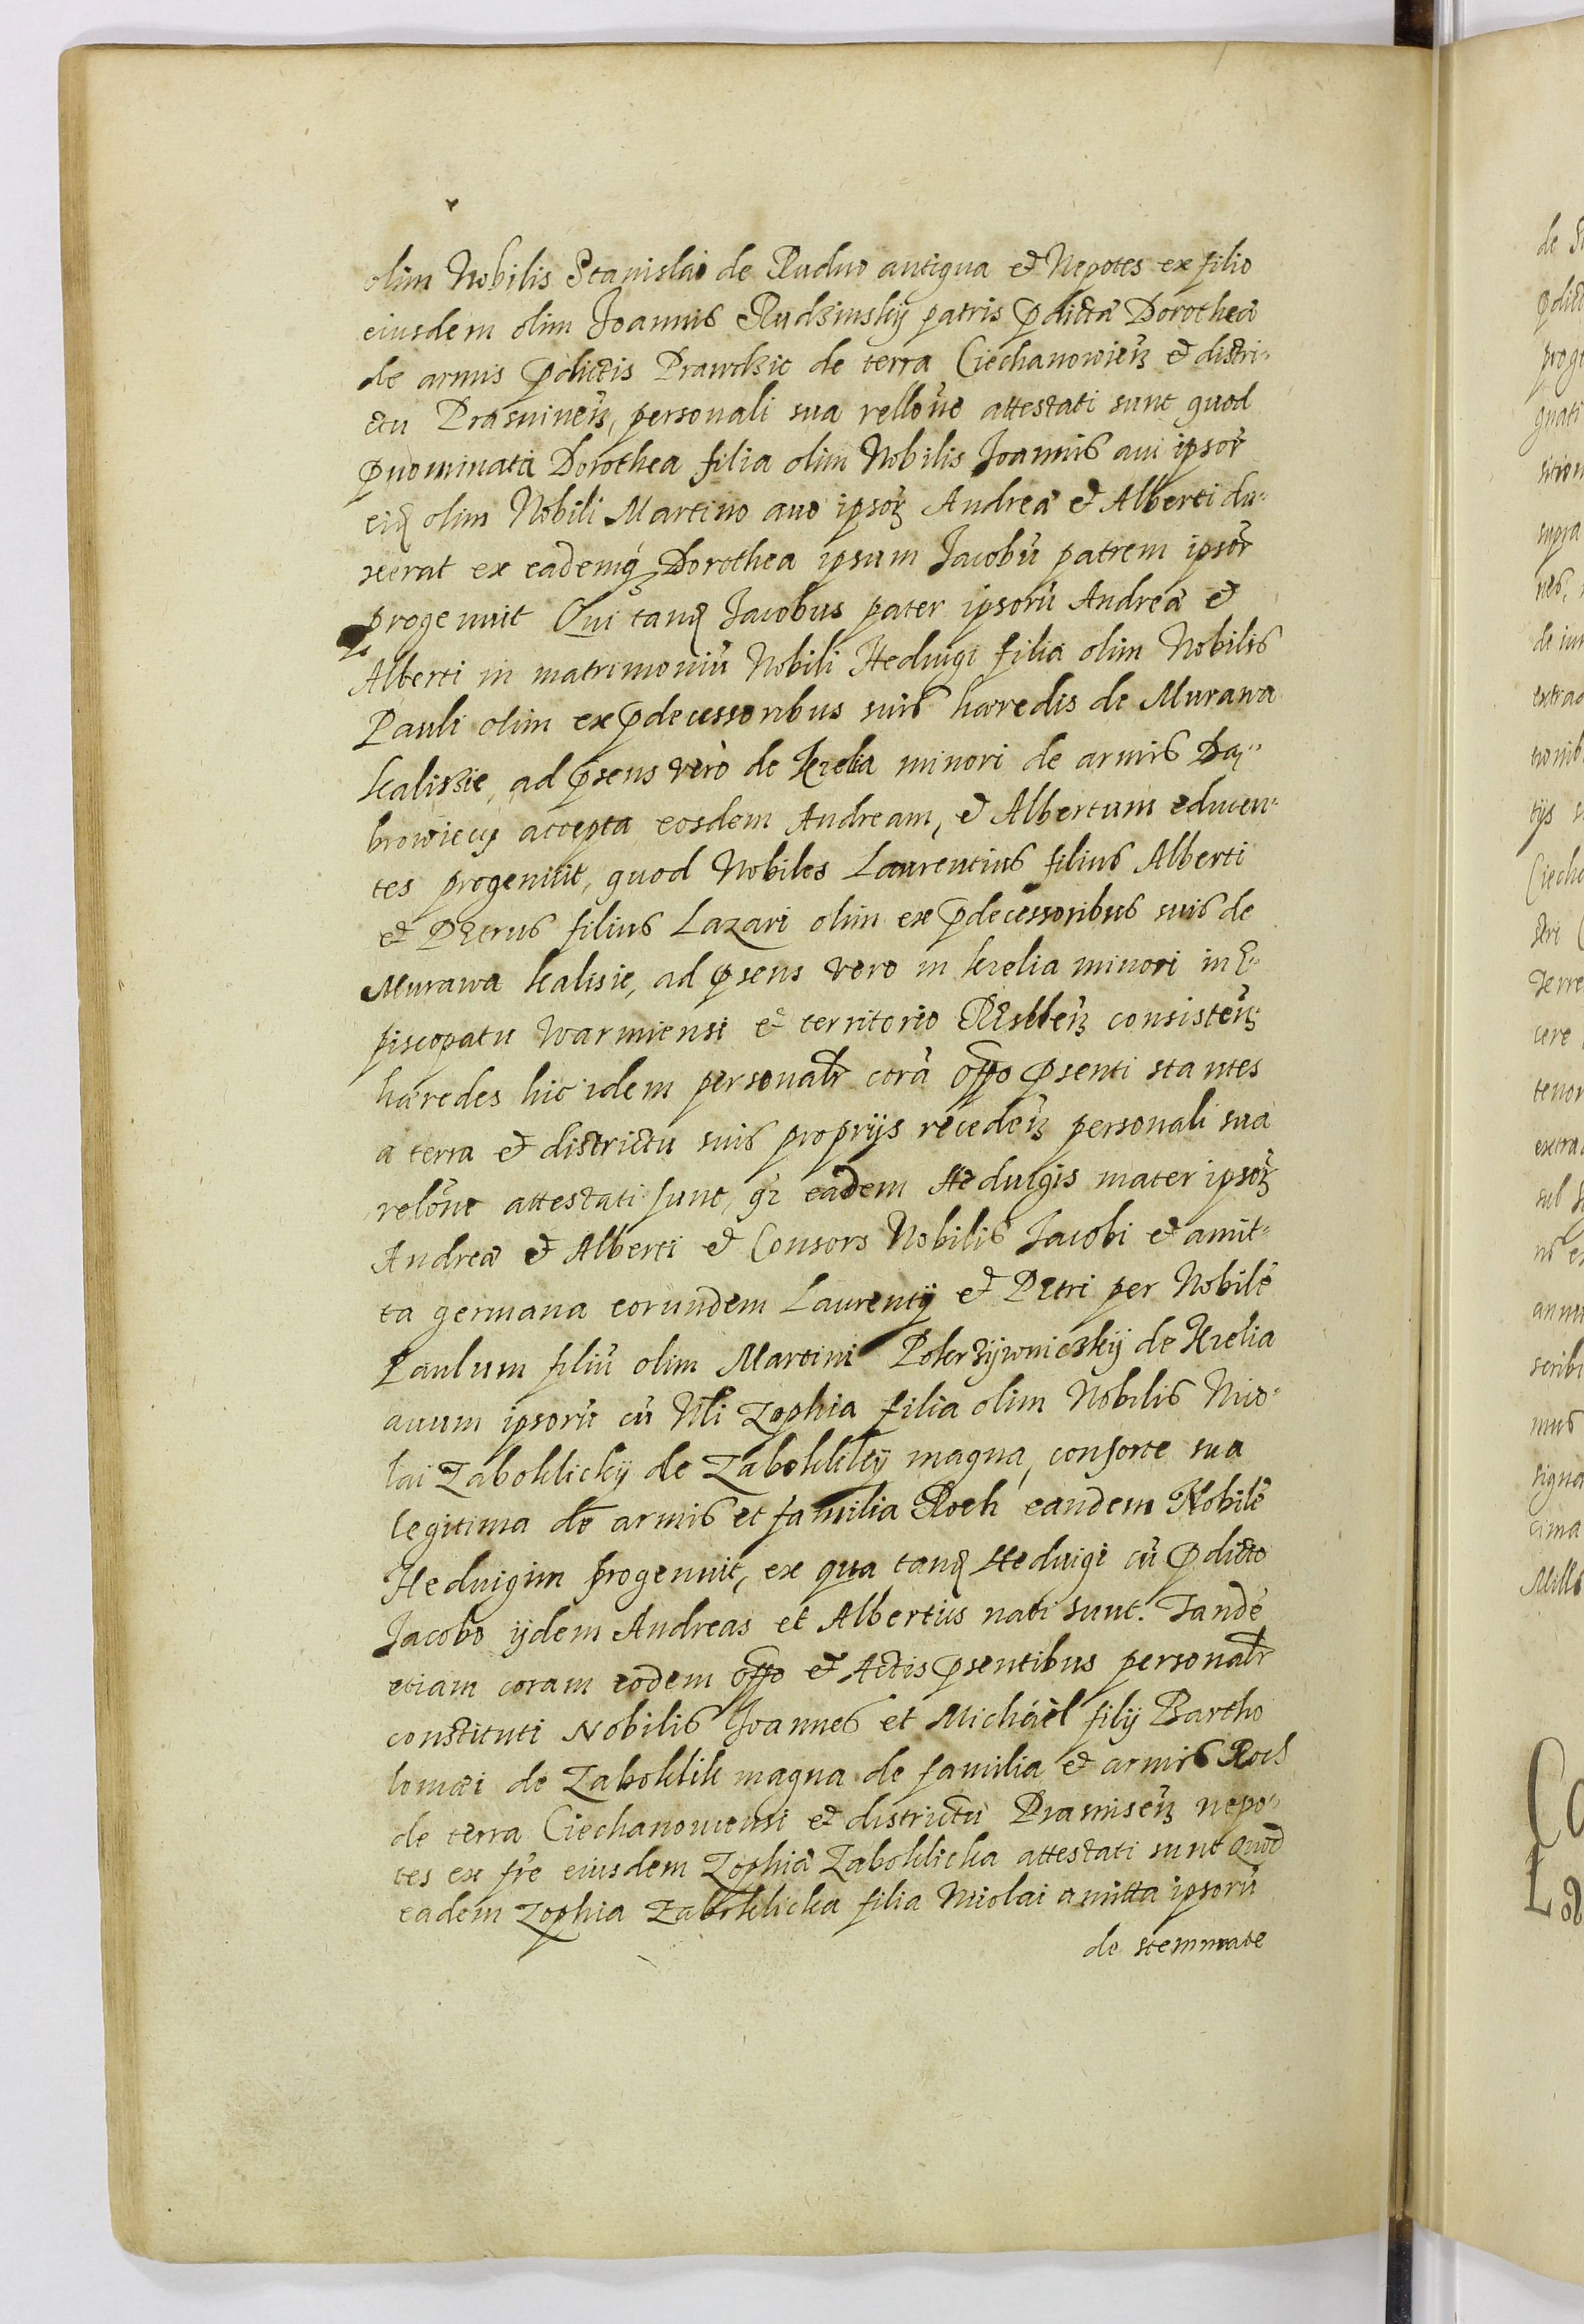 olim Nobilis Stanislai de Ruduo antiqua et Nepotes ex filio
eiusdem olim Joannis Rudzinskÿ patris p̱dictæ Dorotheæ
de armis p̱dictis Prawdzic de terra Ciechanowieñ et distri-
ctu Prasninen̄, personali sua rellōne attestati sunt quod
p̱nominata Dorothea filia olim Nobilis Joannis aui ipsor̄
olim Nobili Martino auo ipsor̄ Andreæ et Alberti du-
xerat ex eademq́ Dorothea ipsum Jacobū patrem ipsor̄
progenuit Qui tanq̱ Jacobus pater ipsorū Andreæ et
Alberti in matrimoniū Nobili Heduigi filia olim Nobilis
Pauli olim ex p̱decessoribus suis hæredis de Murawa
kalissie, ad p̱sens verò de Krelia minori de armis Da-
browiecz accepta eosdem Andream, et Albertum educen-
tes progenuit, quod Nobiles Laurentius filius Alberti
et Petrus filius Lazari olim ex p̱decessoribus suis de
Murawa kalisie, ad p̱sens vero in krelia minori in E-
piscopatu Warmiensi et territorio Resllen̄ consisten̄
hæredes hic idem personalr̄ corā offo p̱senti stantes
a terra et districtu suis proprijs receden̄ personali sua
relōne attestati sunt, qr̄ eadem Heduigis mater ipsor̄
Andreæ et Alberti et Consors Nobilis Jacobi et amit-
ta germana eorundem Laurentÿ et Petri per Nobilē
Paulum filiū olim Martini Pokrzÿwnickÿ de Krelia
auum ipsorū cū Nli Zophia filia olim Nobilis Nico-
lai Zaboklickÿ de Zaboklikÿ magna, consorte sua
legitima de armis et familia Roch eandem Nobilē
Heduigim progenuit, ex qua tanq̱ Heduigi cū p̱dicto
Jacobo ijdem Andreas et Albertus nati sunt. Tandē
etiam coram eodem offo et Actis p̱sentibus personalr̄
constituti Nobilis Joannes et Michäel filij Bartho
lomæi de Zaboklik magna de familia et armis Roch
de terra Ciechanouiensi et districtu Pramisen̄ nepo-
tes ex fr̄e eiusdem Zophiæ Zaboklicka attestati sunt Quod
eadem Zophia Zaboklicka filia Nicolai amitta ipsorū
de stemmate